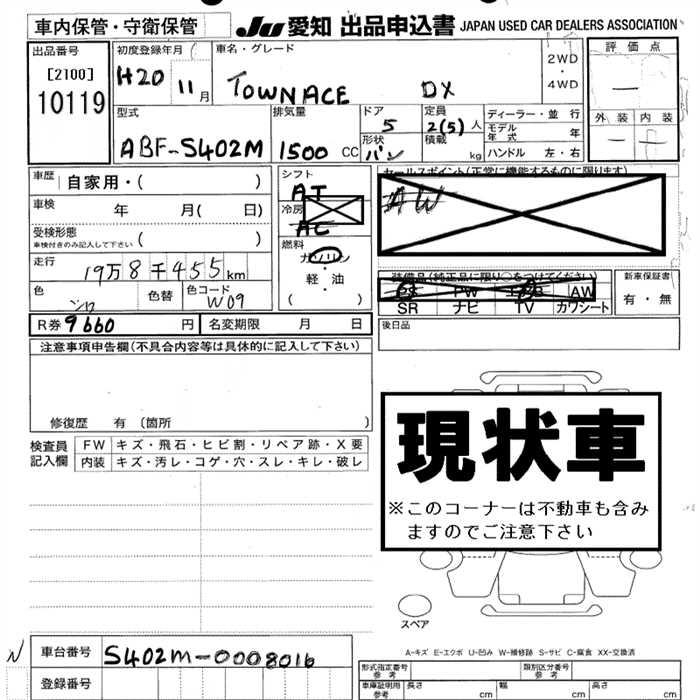 車内保管・守衛保管
JU 愛知 出品申込書 JAPAN USED CAR DEALERS ASSOCIATION
出品番号
[2100]
10119
初度登録年月
H20 11月
車名・グレード
TOWNACE DX
2WD
・
4WD
評価点
—
外装 内装
型式
ABF-S402M
排気量
1500 CC
ドア
5
形状
バン
定員
2(5)人
積載
kg
ディーラー・並行
モデル年式 年
ハンドル 左・右
車歴 自家用・( )
車検 年 月( 日)
受検形態 ( )
車検付きのみ記入して下さい
走行
19万8千455km
色
シロ
色替
色コード
W09
シフト
AT
冷房
AC
燃料
ガソリン
・
軽・油
( )
セールスポイント(正常に機能するものに限ります)
AW
装備品(純正品に限り○をつけてください)
PS PW エアB AW
SR ナビ TV カワシート
新車保証書
有・無
R券 9660 円
名変期限 月 日
後日品
注意事項申告欄(不具合内容等は具体的に記入して下さい)
修復歴 有 (箇所 )
検査員
記入欄
FW キズ・飛石・ヒビ割・リペア跡・X要
内装 キズ・汚レ・コゲ・穴・スレ・キレ・破レ
現状車
※このコーナーは不動車も含み
ますのでご注意下さい
スペア
A-キズ E-エクボ U-凹み W-補修跡 S-サビ C-腐食 XX-交換済
N
車台番号 S402M-0008016
登録番号
形式指定番号
参考
類別区分番号
参考
車庫証明用
参考
長さ cm 幅 cm 高さ cm